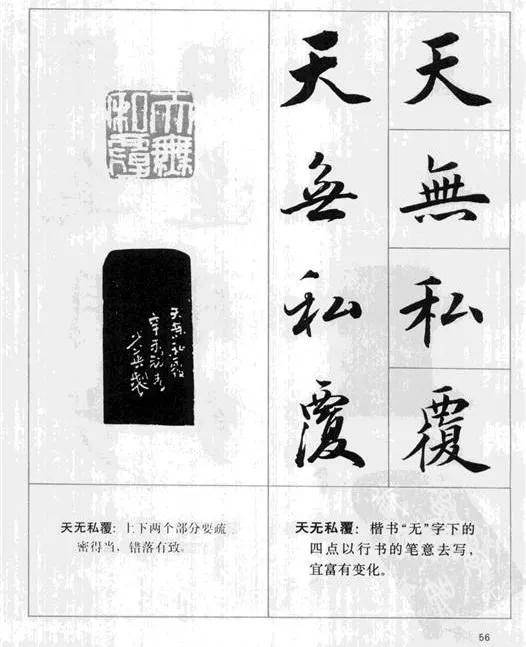 天無私覆
天無私覆
天無私覆
天無私覆
辛未
製
天无私覆：上下两个部分要疏
密得当，错落有致。
天无私覆：楷书“无”字下的
四点以行书的笔意去写，
宜富有变化。
56